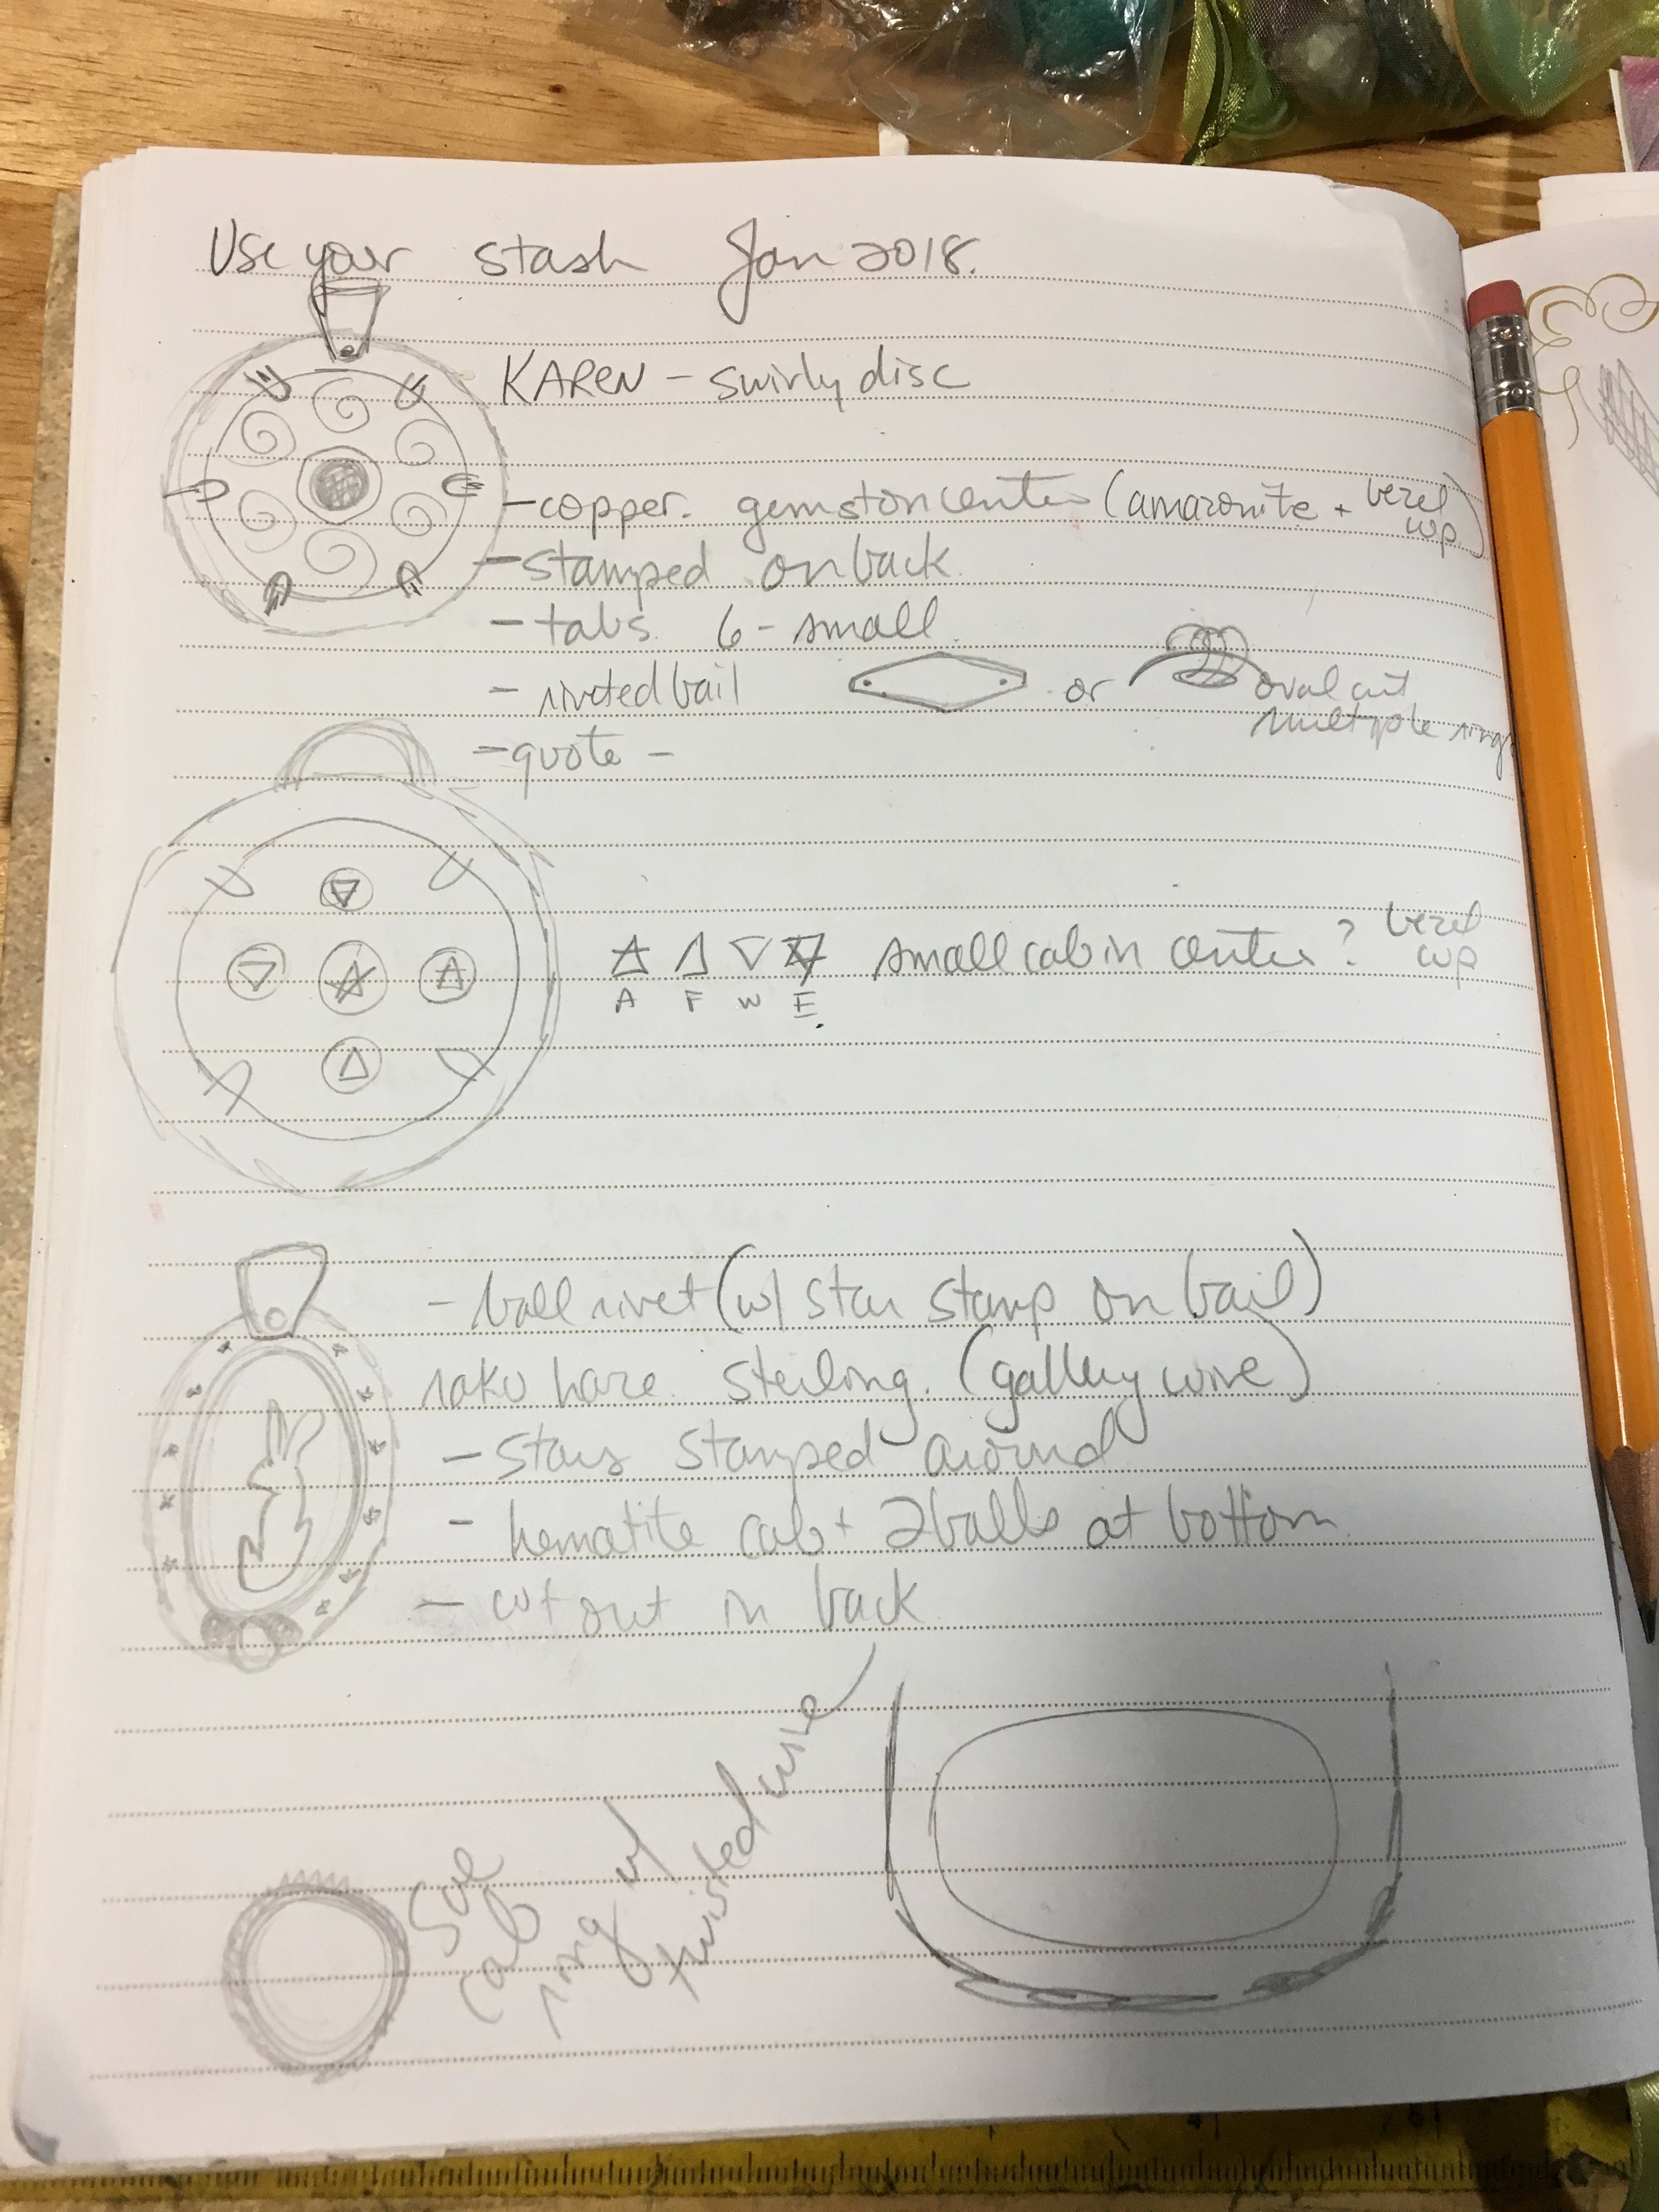 Use your stash Jan 2018.
KAREN - swirly disc
- copper. gemstone center (amazonite + bezel cup)
- stamped on back.
- tabs. 6 - small.
- riveted bail or oval cut multiple rings
- quote -
A F W E small cab in center? bezel cup
- ball rivet (w/ star stamp on bail)
raku hare. sterling. (gallery wire)
- stars stamped around
- hematite cab + 2 balls at bottom.
- cut out in back
Sue
cab
ring w/
twisted wire